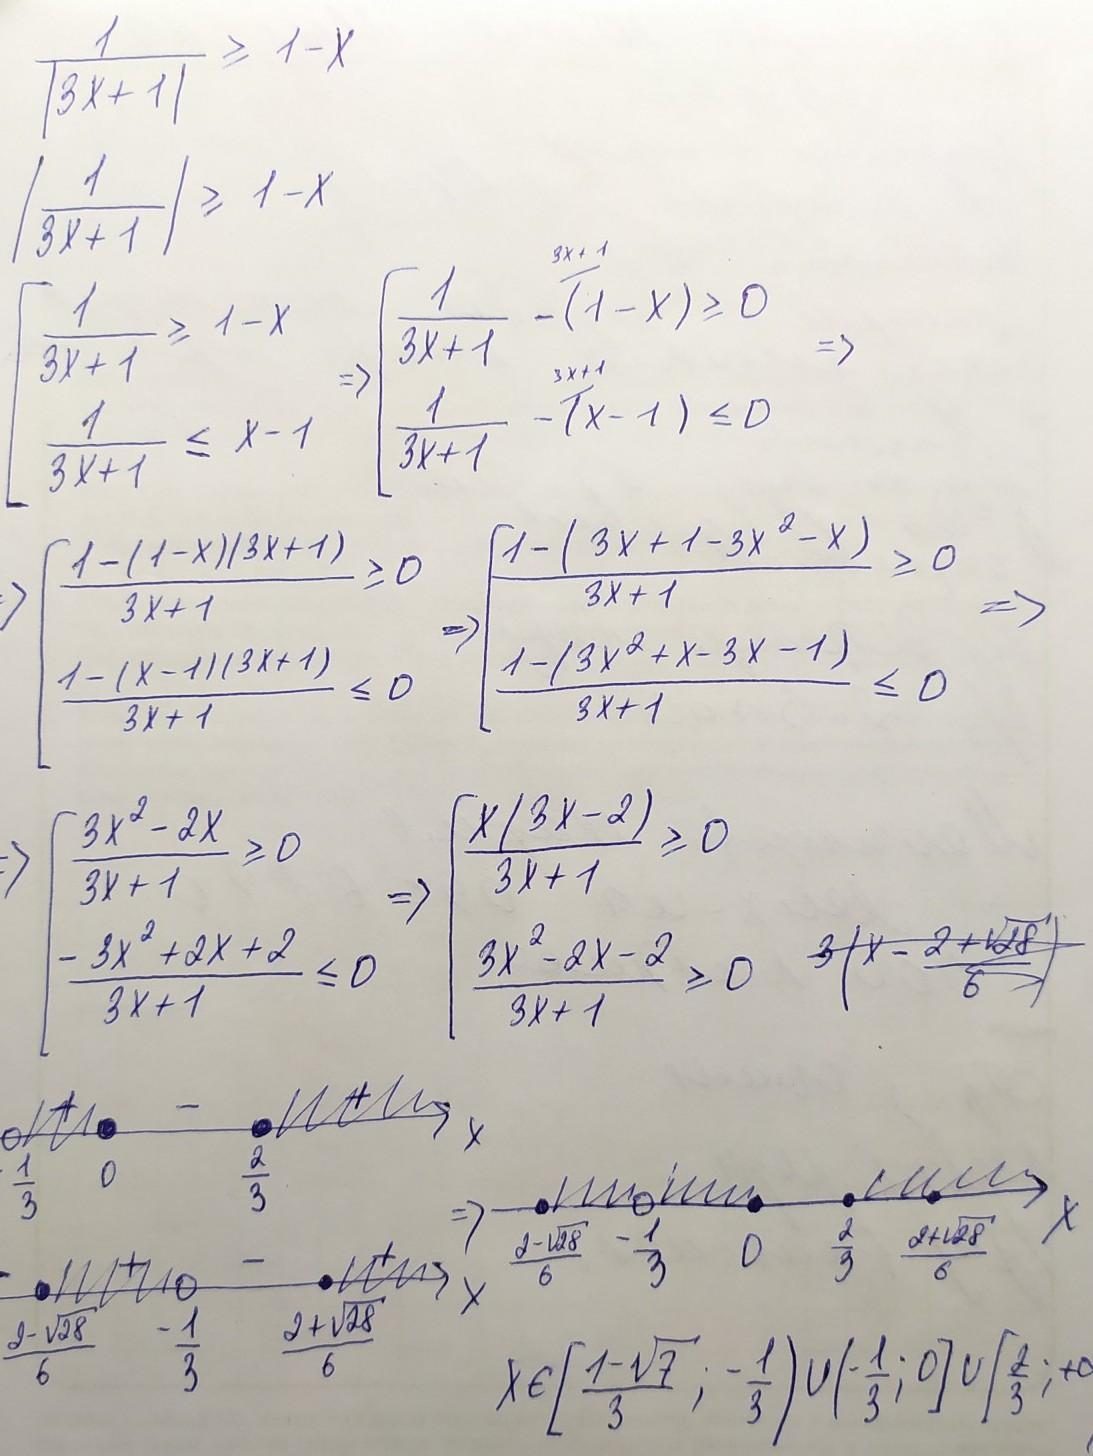 1/|3x+1| ≥ 1-x
|1/(3x+1)| ≥ 1-x
[ 1/(3x+1) ≥ 1-x => [ 1/(3x+1) - (1-x) ≥ 0 =>
3x+1
1/(3x+1) ≤ x-1
1/(3x+1) - (x-1) ≤ 0
3x+1
=> [ (1-(1-x)(3x+1))/(3x+1) ≥ 0 => [ (1-(3x+1-3x²-x))/(3x+1) ≥ 0 =>
(1-(x-1)(3x+1))/(3x+1) ≤ 0
(1-(3x²+x-3x-1))/(3x+1) ≤ 0
=> [ (3x²-2x)/(3x+1) ≥ 0 => [ x(3x-2)/(3x+1) ≥ 0
(-3x²+2x+2)/(3x+1) ≤ 0
(3x²-2x-2)/(3x+1) ≥ 0
3(x - (2+√28)/6)
+ - + x
-1/3 0 2/3
=> x
(2-√28)/6 -1/3 0 2/3 (2+√28)/6
- + - + x
(2-√28)/6 -1/3 (2+√28)/6
x∈[(1-√7)/3; -1/3)∪(-1/3; 0]∪[2/3; +